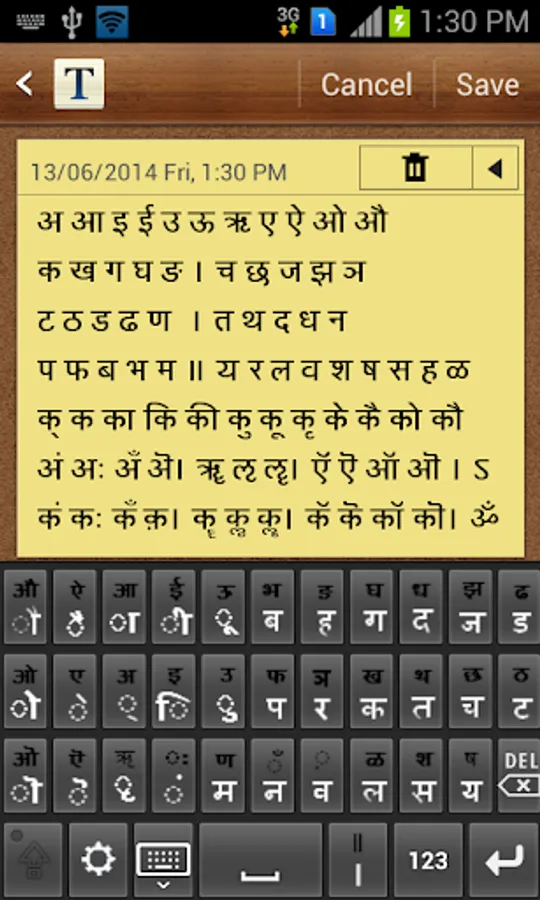 3G 1 1:30 PM
T Cancel Save
13/06/2014 Fri, 1:30 PM
अ आ इ ई उ ऊ ऋ ए ऐ ओ औ
क ख ग घ ङ । च छ ज झ ञ
ट ठ ड ढ ण । त थ द ध न
प फ ब भ म ॥ य र ल व श ष स ह ळ
क् क का कि की कु कू कृ के कै को कौ
अं अः अँ ऄ। ॠ ऌ ॡ। ऍ ऎ ऑ ऒ । ऽ
कं कः कँ क़। कॄ कॢ कॣ। कॅ कॆ कॉ कॊ। ॐ
औ ऐ आ ई ऊ भ ङ घ ध झ ढ
ौ ै ा ी ू ब ह ग द ज ड
ओ ए अ इ उ फ ञ ख थ छ ठ
ो े ् ि ु प र क त च ट
ऒ ऎ ऋ ः ण ँ ़ ळ श ष DEL
ॊ ॆ ृ ं म न व ल स य
॥
। 123